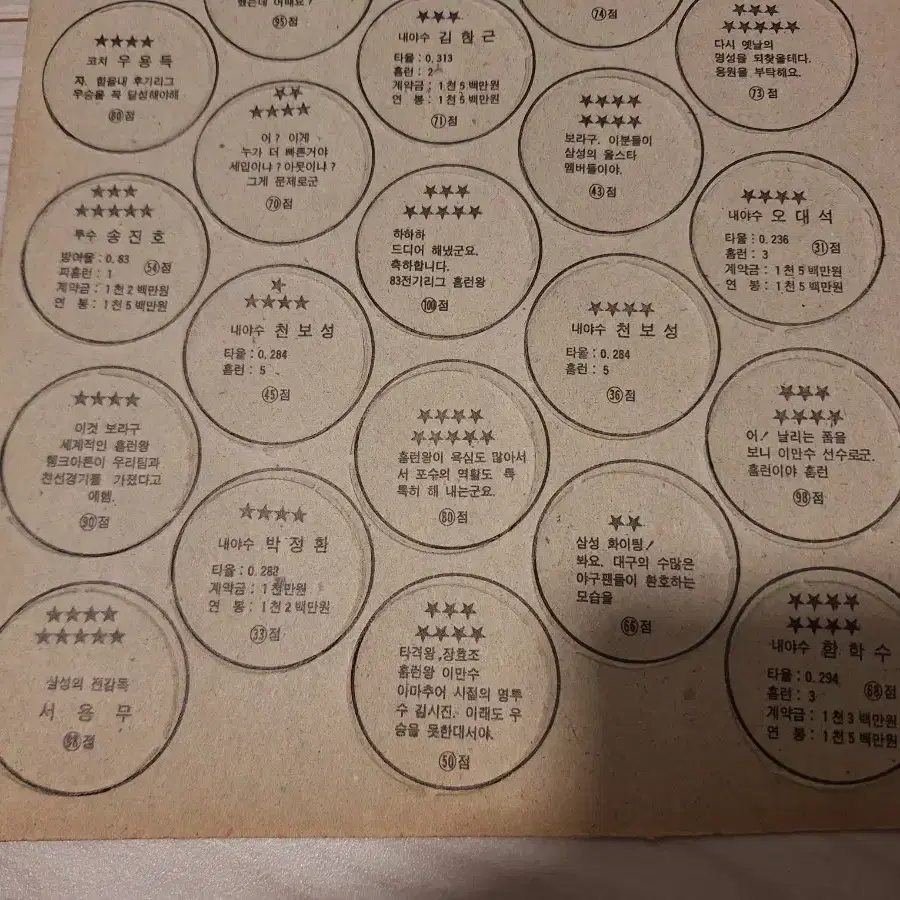 했는데 어때요?
95점
74점
★★★★
코치 우용득
자, 힘을내 후기리그
우승을 꼭 달성해야해
80점
★★★
내야수 김한근
타율: 0.313
홈런: 2
계약금: 1천5백만원
연 봉: 1천5백만원
71점
★★★
★★★★★
다시 옛날의
명성을 되찾을테다.
응원을 부탁해요.
73점
★★
★★★★
어? 이게
누가 더 빠른거야
세입이냐? 아웃이냐?
그게 문제로군
70점
★★★★
★★★★
보라구. 이분들이
삼성의 올스타
멤버들이야.
43점
★★★
★★★★★
투수 송진호
방어율: 0.83
피홈런: 1
계약금: 1천2백만원
연 봉: 1천5백만원
54점
★★★
★★★★★
하하하
드디어 해냈군요.
축하합니다.
83전기리그 홈런왕
100점
★★★★
내야수 오대석
타율: 0.236
홈런: 3
계약금: 1천5백만원
연 봉: 1천5백만원
31점
★
★★★★
내야수 천보성
타율: 0.284
홈런: 5
45점
★★★★
내야수 천보성
타율: 0.284
홈런: 5
36점
★★★★
이것 보라구
세계적인 홈런왕
행크아론이 우리팀과
친선경기를 가졌다고
에헴.
90점
★★★★
★★★★★
홈런왕이 욕심도 많아서
서 포수의 역활도 톡
특히 해 내는군요.
80점
★★★
★★★★
어! 날리는 폼을
보니 이만수 선수로군.
홈런이야 홈런
98점
★★★★
내야수 박정환
타율: 0.282
계약금: 1천만원
연 봉: 1천2백만원
33점
★★
삼성 화이팅!
봐요. 대구의 수많은
야구팬들이 환호하는
모습을
66점
★★★★
★★★★★
삼성의 전감독
서용무
점
★★★
★★★★
타격왕,장효조
홈런왕 이만수
아마추어 시절의 명투
수 김시진. 이래도 우
승을 못한대서야.
50점
★★★★
★★★★
내야수 함학수
타율: 0.294
홈런: 3
계약금: 1천3백만원
연 봉: 1천5백만원
68점